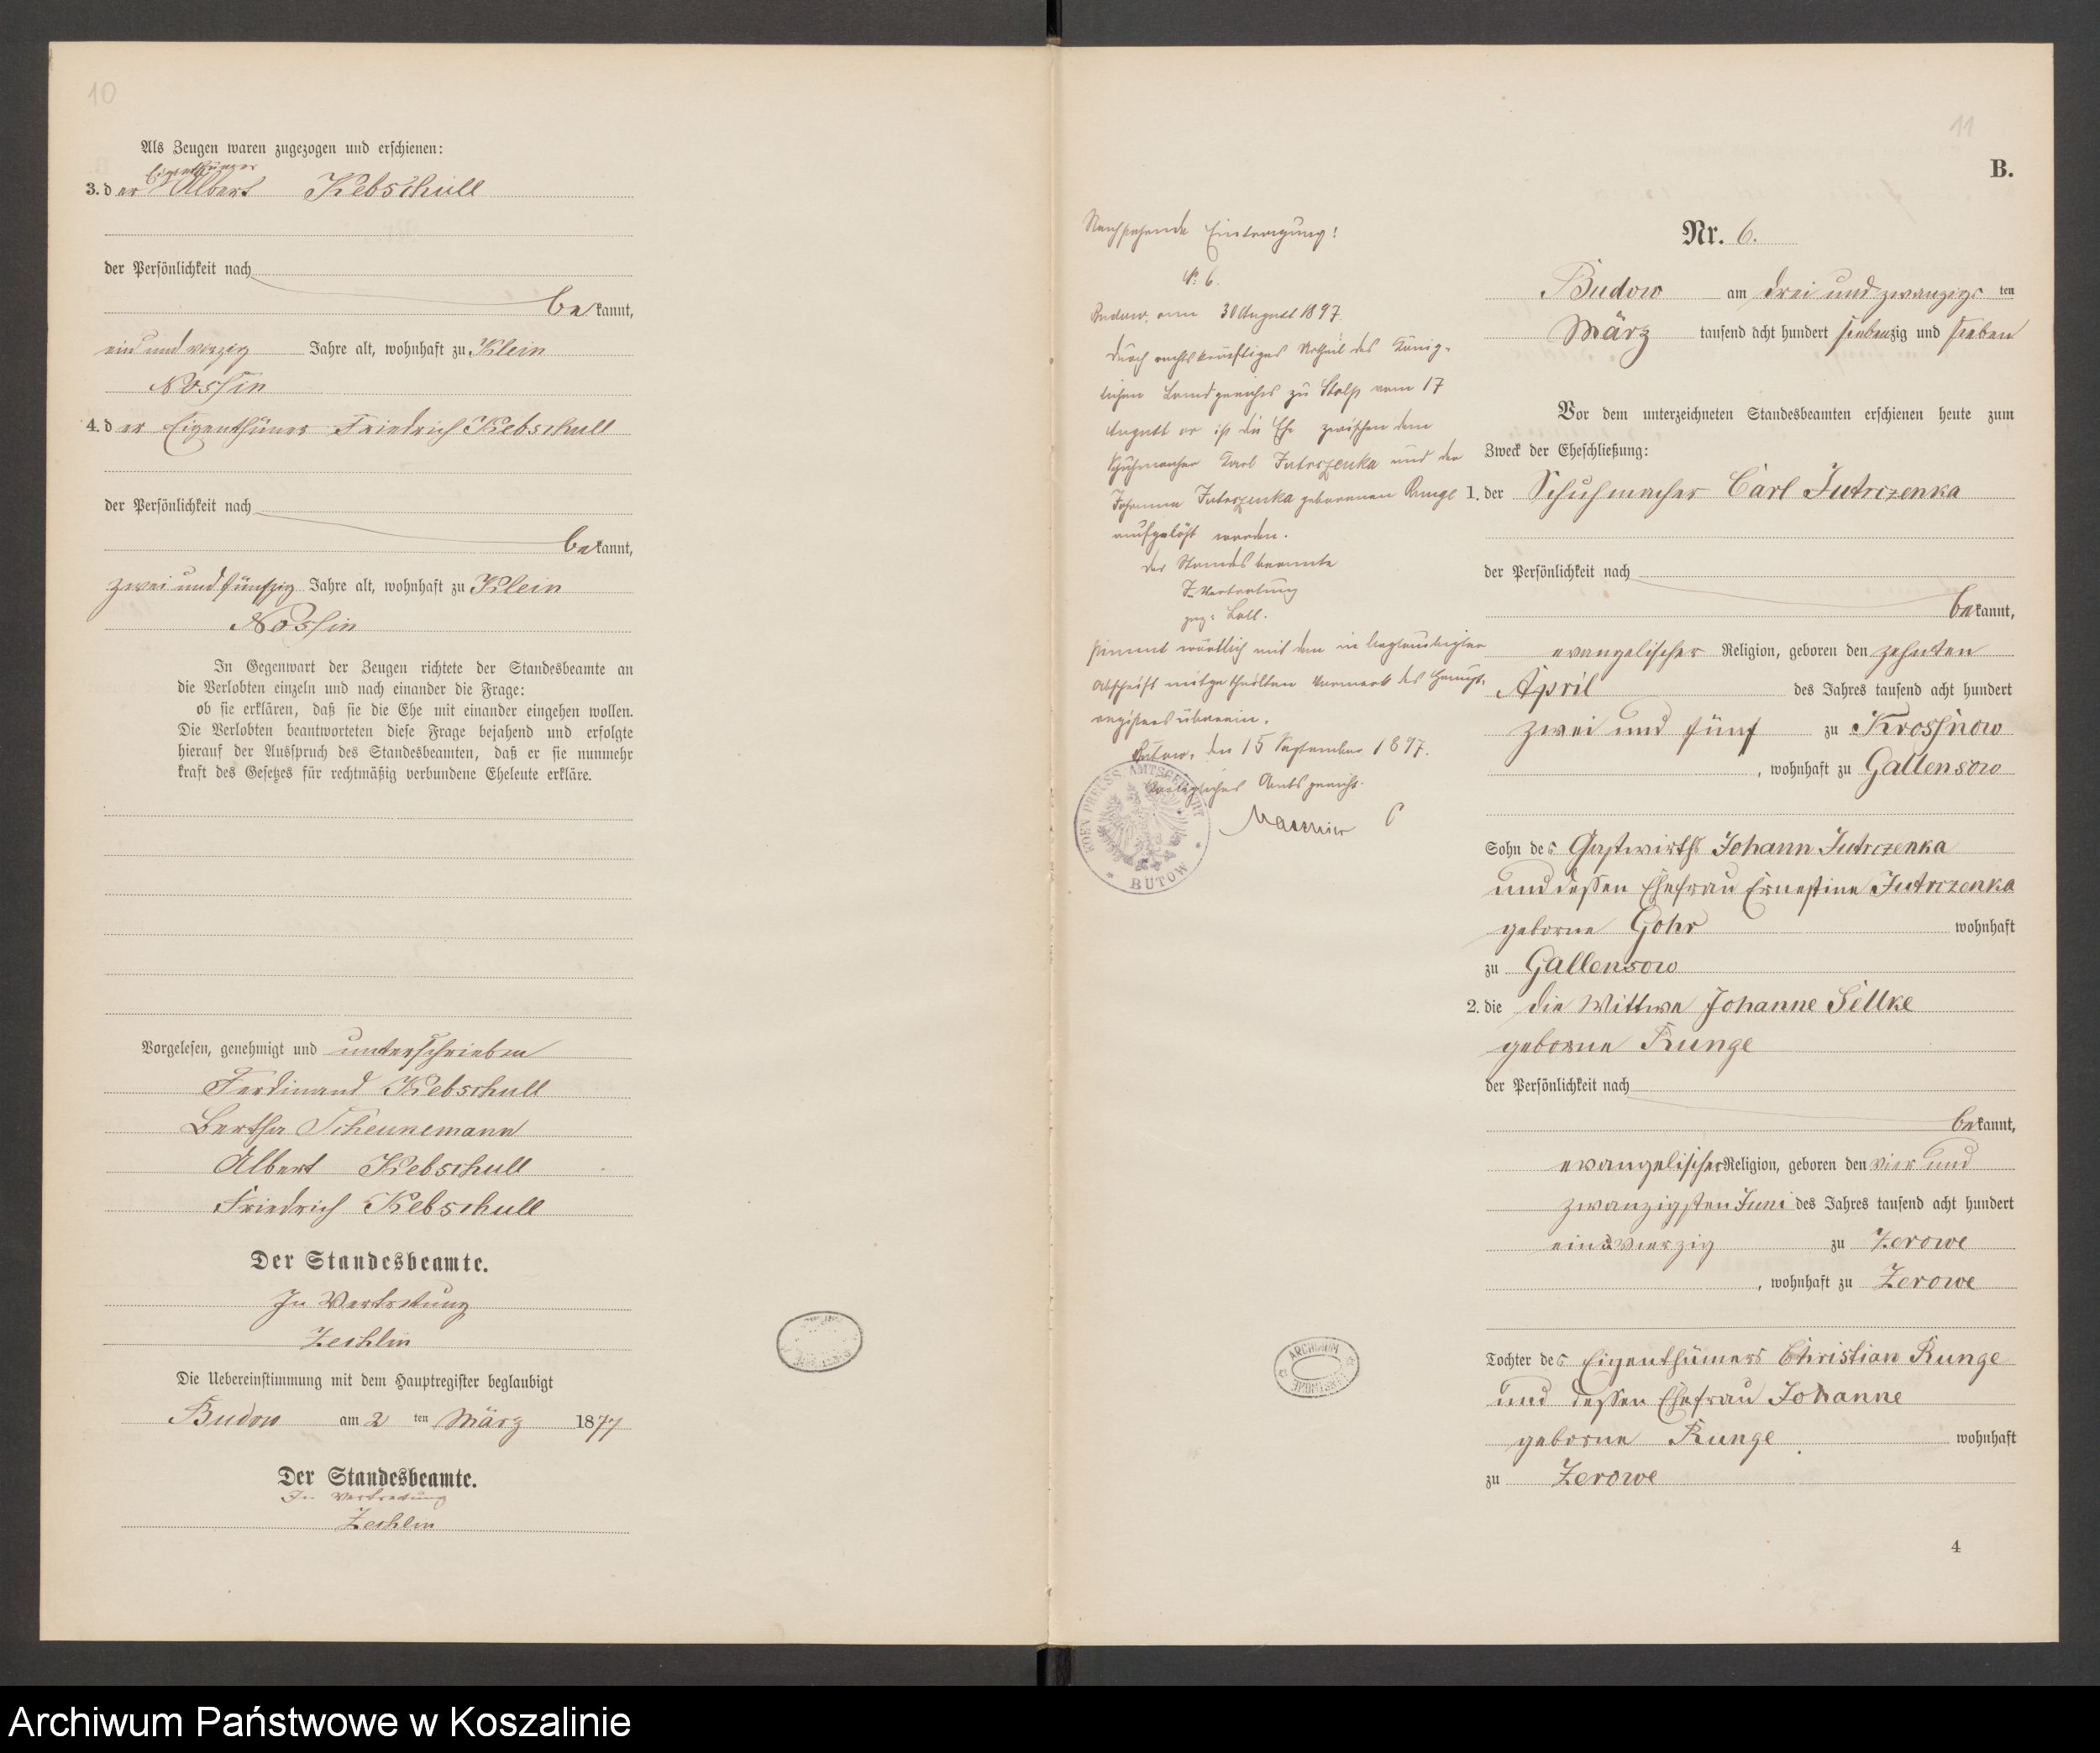 10
Als Zeugen waren zugezogen und erschienen:
Eigenthümer
3. der Albert Kebschull
der Persönlichkeit nach
bekannt,
ein und vierzig Jahre alt, wohnhaft zu Klein
Nossin
4. der Eigenthümer Friedrich Kebschull
der Persönlichkeit nach
bekannt,
zwei und fünfzig Jahre alt, wohnhaft zu Klein
Nossin
In Gegenwart der Zeugen richtete der Standesbeamte an
die Verlobten einzeln und nach einander die Frage:
ob sie erklären, daß sie die Ehe mit einander eingehen wollen.
Die Verlobten beantworteten diese Frage bejahend und erfolgte
hierauf der Ausspruch des Standesbeamten, daß er sie nunmehr
kraft des Gesetzes für rechtmäßig verbundene Eheleute erkläre.
Vorgelesen, genehmigt und unterschrieben
Ferdinand Kebschull
Bertha Scheunemann
Albert Kebschull
Friedrich Kebschull
Der Standesbeamte.
In Vertretung
Zechlin
Die Uebereinstimmung mit dem Hauptregister beglaubigt
Budow am 2 ten März 1877
Der Standesbeamte.
In Vertretung
Zechlin
11
B.
Nachstehende Eintragung!
No 6.
Budow, am 30 August 1897.
Durch rechtskräftiges Urtheil des König-
lichen Landgerichts zu Stolp vom 17
August er ist die Ehe zwischen dem
Schuhmacher Karl Jutrczenka und der
Johanna Jutrczenka geborenen Runge
aufgelöst worden.
Der Standesbeamte
In Vertretung
gez: Ball.
stimmt wörtlich mit dem in beglaubigter
Abschrift mitgetheilten Vermerk des Haupt-
registers überein.
Bütow, den 15 September 1897.
Königliches Amtsgericht.
KOEN. PREUSS. AMTSGERICHT
* BÜTOW *
Nr. 6.
Budow am drei und zwanzigs ten
März tausend acht hundert siebenzig und sieben
Vor dem unterzeichneten Standesbeamten erschienen heute zum
Zweck der Eheschließung:
1. der Schuhmacher Carl Jutrczenka
der Persönlichkeit nach
bekannt,
evangelischer Religion, geboren den zehnten
April des Jahres tausend acht hundert
zwei und fünf zu Krossnow
, wohnhaft zu Gallensow
Sohn des Gastwirths Johann Jutrczenka
und dessen Ehefrau Ernestine Jutrczenka
geborne Gohr wohnhaft
zu Gallensow
2. die die Wittwe Johanne Sellke
geborne Runge
der Persönlichkeit nach
bekannt,
evangelischer Religion, geboren den vier und
zwanzigsten Juni des Jahres tausend acht hundert
ein u vierzig zu Zerowe
, wohnhaft zu Zerowe
ARCHIWUM
Tochter des Eigenthümers Christian Runge
und dessen Ehefrau Johanne
geborne Runge wohnhaft
zu Zerowe
4
Archiwum Państwowe w Koszalinie